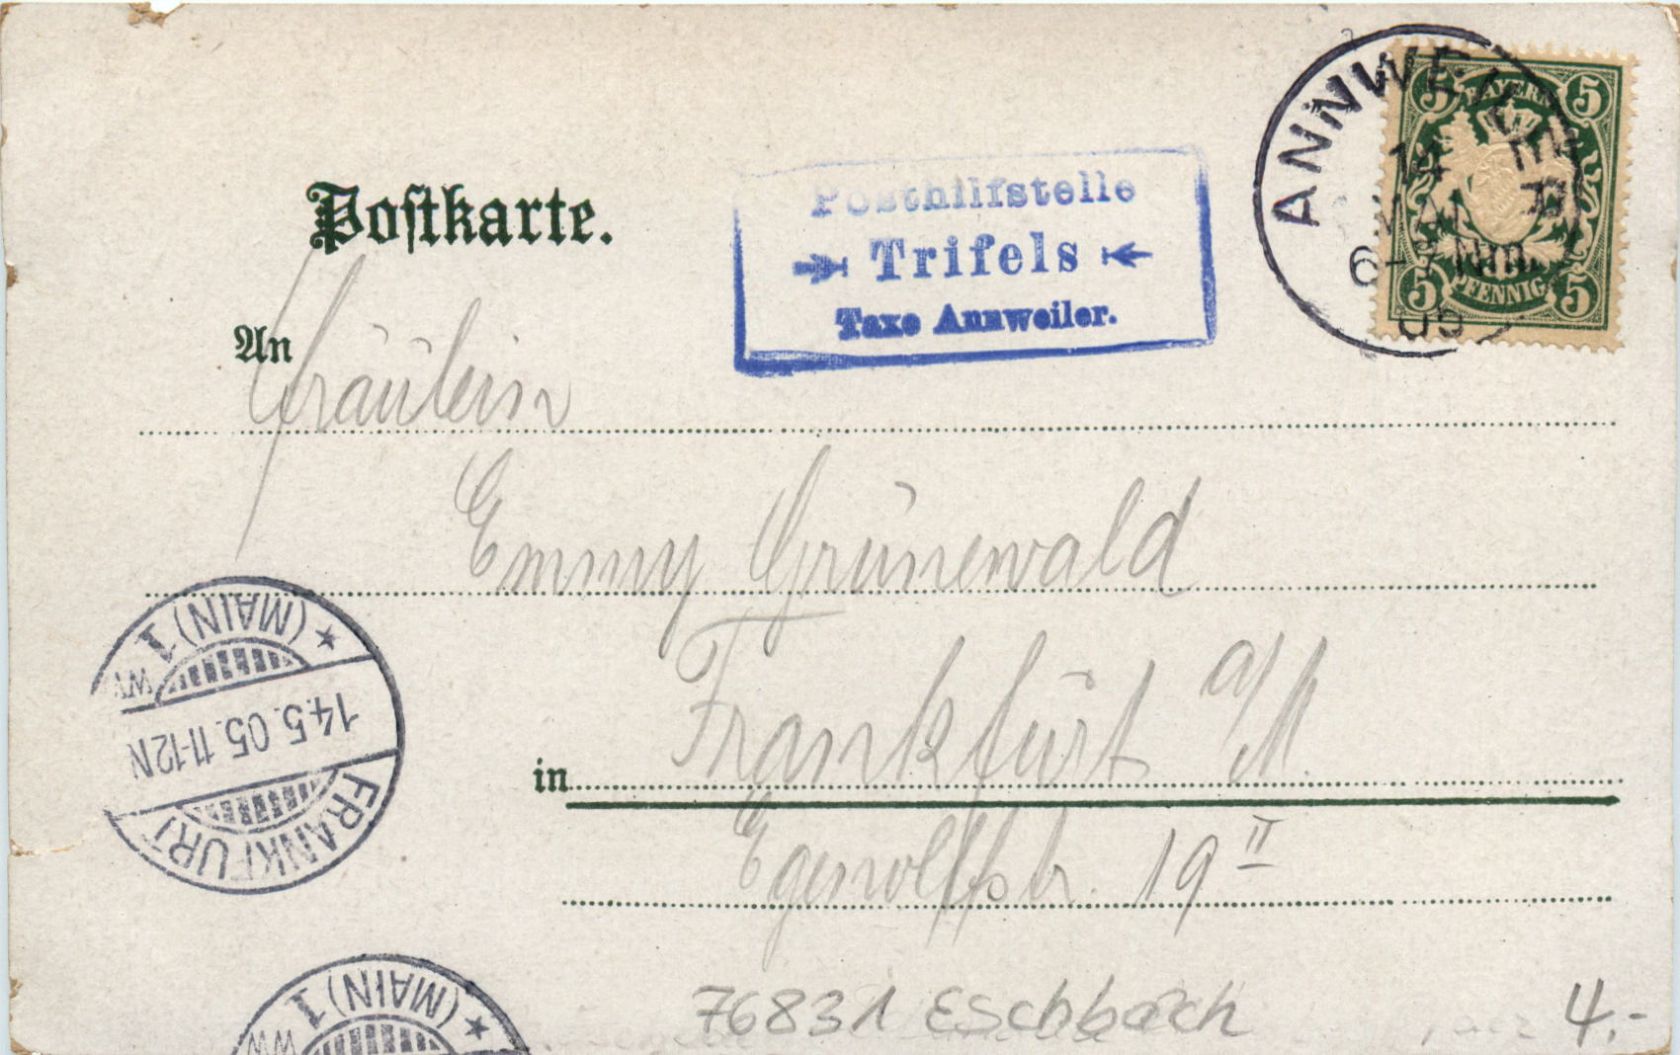 ANNWEILER
14
MAI
6-7 Nm
05
BAYERN
5 5
5 5
PFENNIG
Posthilfstelle
Trifels
Taxe Annweiler.
Postkarte.
An Fräulein
Emmy Grünewald
in Frankfurt a/M.
Egenolffstr. 19 II
* (MAIN) 1
14.5.05.11-12N
FRANKFURT
* (MAIN) 1
76831 Eschbach
4.-